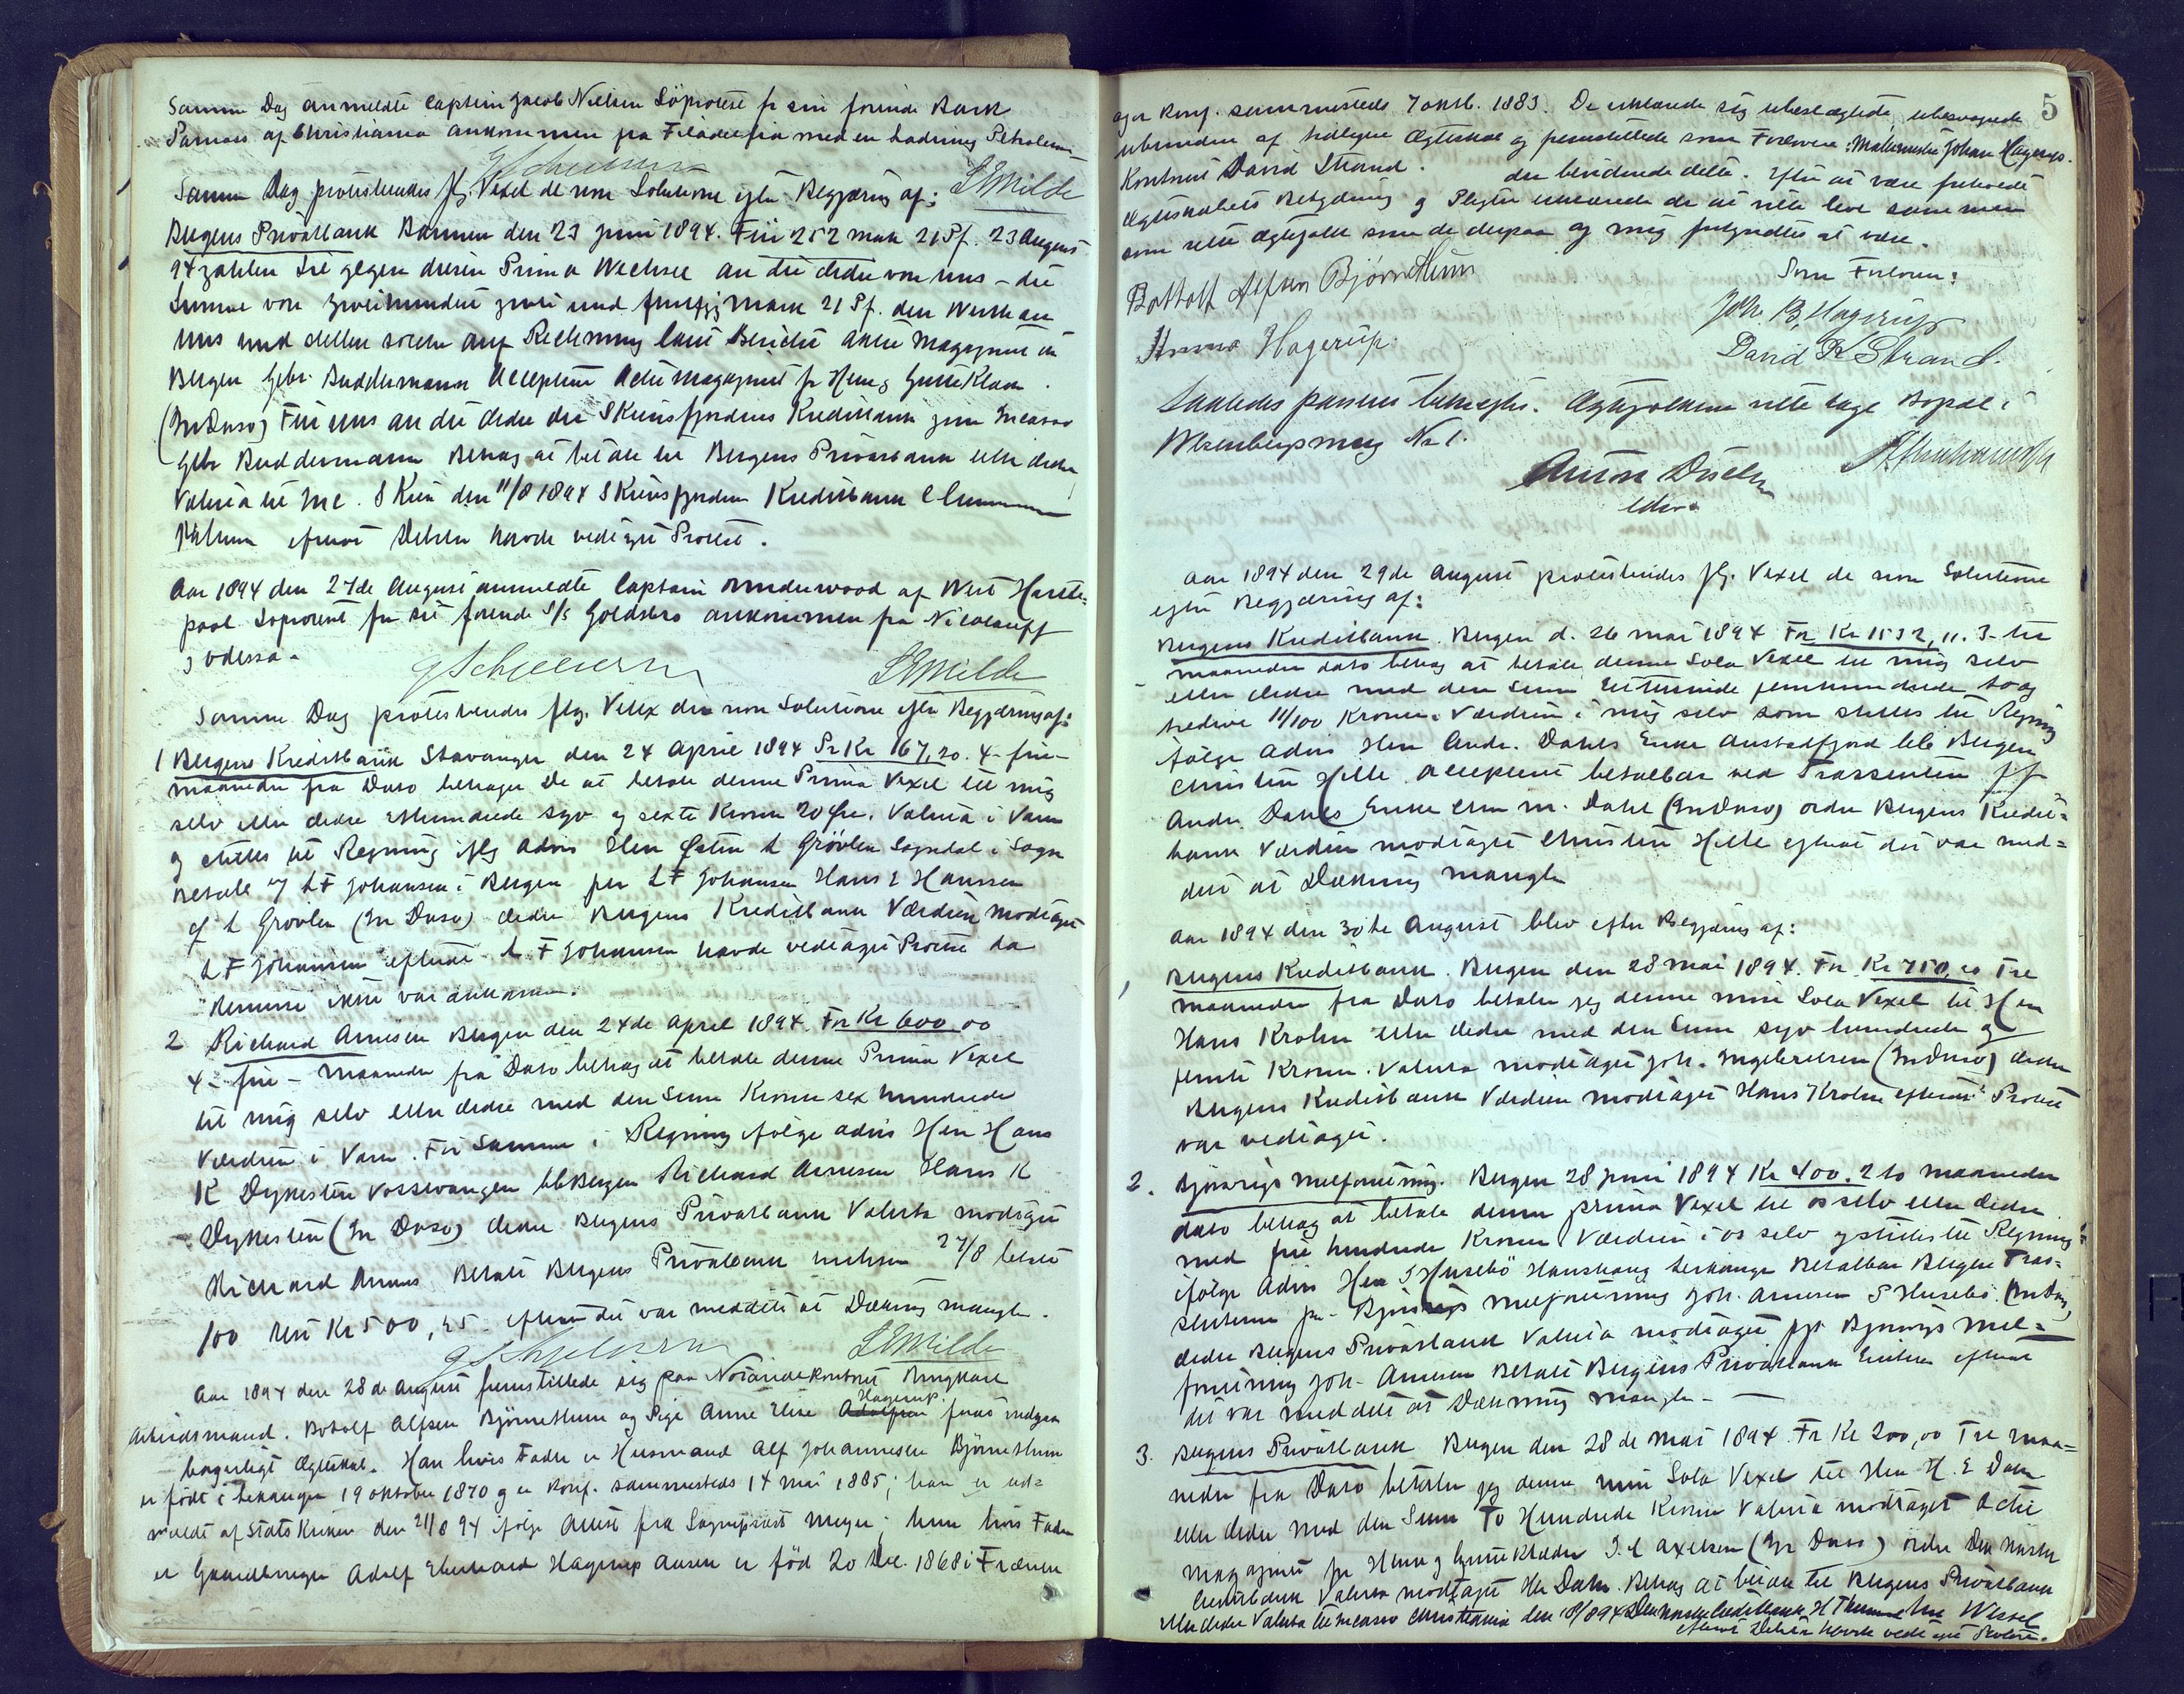 Samme Dag anmeldte Captein Jacob Nielsen Söprotest fr sin förende Bark
Parnass af Christiania ankommen fra Filadelfia med en Ladning Petroleum
Samme Dag protesteredes flg. Vexel de non Solutione efter Begjæring af: LMilde
Bergens Privatbank Barmen den 23 Juni 1894. Für 252 mark 21 Pf. 23 August
94 zahlen Sie gegen diesen Prima Wechsel an die Ordre von uns – die
Summe von zweihundert zwei und funfzig mark 21 Pf. den Werth an
uns und stellen solche auf Rechnung laut Bericht Actie Magazinet in
Bergen Gebr. Buddermann Accepteret Actie Magazinet fr Herre og Gutte Klæder.
(In Dorso) Für uns an die Ordre der Skiensfjordens Kreditbank zum Incasso
Gebr Buddermann Behag at betale til Bergens Privatbank eller Ordre
Valuta til Inc. Skien den 11/8 1894 Skiensfjordens Kreditbank
efterat Debitor havde vedtaget Protest.
Aar 1894 den 27de August anmeldte Captain Underwood af West Hartle=
pool Söprotest for sit förende S/S Goldsbro ankommen fra Nicolaieff
og Odessa.
LMilde
Samme Dag protesteredes flg. Vexler de non Solutione efter Begjæring af:
1 Bergens Kreditbank Stavanger den 24 April 1894 Pr Kr 167,20. 4 – fire –
maaneder fra Dato behager De at betale denne Prima Vexel til mig
selv eller Ordre Ethundrede syv og sexti Kroner 20 Øre. Valuta i Varer
og stilles til Regning iflg Advis Herr Østen L Grövlen Sogndal i Sogn
Betalb. af L F Johansen i Bergen per L F Johansen Hans L Hanssen
Ø L Grövlen (In Dorso) Ordre Bergens Kreditbank Værdien modtaget
L F Johansen efterat L F Johansen havde vedtaget Protest da
Remisse ikke var ankommen.
2 Richard Arnesen Bergen den 24de April 1894. For Kr 600,00
4 – fire – maaneder fra Dato behag at betale denne Prima Vexel
til mig selv eller Ordre med den Sum Kroner sex hundrede
Værdien i Varer. Før Summen i Regning ifølge Advis Herr Hans
K Dykesten Vossevangen bb Bergen Richard Arnesen Hans K
Dykesten (In Dorso) Ordre Bergens Privatbank Valuta modtaget
Richard Arnesen Betalt Bergens Privatbank 27/8 betalt
100 Rest Kr 500,25 – efterat det var meddelt at Dækning mangler.
LMilde
Aar 1894 den 28de August fremstillede sig paa Notarialkontoret Ungkarl
Arbeidsmand. Botolf Alfsen Björnethun og Pige Anne Elise Adolfsen Hagerup for at indgaa
borgerligt Ægteskab. Han hvis Fader er Husmand Alf Johannesen Björnethun
er født i Lekanger 19 oktober 1870 og er Konf. sammesteds 14 mai 1885; han er ud=
meldt af Stats Kirken den 21/8 94 ifölge Attest fra Sognepræst Meyer; hun hvis Fader
er Gaardbruger Adolf Eberhard Hagerup Aasen er fød 20 Dec. 1868 i Fræna
5
og er Konf. sammesteds 7 oktb. 1883. De erklærede sig ubeslægtede, ubesvogrede
ubundne af tidligere Ægteskab og fremstillede som Forlovere: Malermester Johan Hagerup.
Kontorist David Strand. der bevidnede dette. Efter at være foreholdt
Ægteskabets Betydning og Pligter erklærede de at ville leve sammen
som rette Ægtefolk som de derpaa af mig forkyndtes at være.
Bottolf Alfsen Björnethun
Som Forlovere:
Joh. B. Hagerup
Hagerup
David K Strand.
Saaledes passeret bekræftes. Ægtefolkene ville tage Bopæl i
Wesenbergsmug No 1.
Aar 1894 den 29de August protesteredes flg. Vexel de non Solutione
efter Begjæring af:
Bergens Kreditbank. Bergen d. 26 mai 1894 For Kr 1532,11. 3 – tre
maaneder dato behag at betale denne Sola Vexel til mig selv
eller Ordre med den Sum Ettusinde femhundrede to og
tredive 11/100 Kroner. Værdien i mig selv som stilles til Regning
følge Advis Herr Andr. Dahls Enke Austadfjord bb Bergen
Christen Hille Accepteret betalbar ved Trassenten ff
Andr. Dahls Enke M. Dahl (In Dorso) ordre Bergens Kredit=
bank Værdien modtaget Christen Hille efterat det var med=
delt at Dækning mangler
Aar 1894 den 30te August blev efter Begjæring af:
Bergens Kreditbank. Bergen den 28 Mai 1894. For Kr 750,00 Tre
maaneder fra Dato betaler jeg denne min Sola Vexel til Herr
Hans Krohn eller Ordre med den Sum syv hundrede og
femti Kroner. Valuta modtaget Joh. Ingebretsen (In Dorso) Ordre
Bergens Kreditbank Værdien modtaget Hans Krohn efterat Protest
var vedtaget.
2. Bjørsvigs Melforretning. Bergen 28 Juni 1894 Kr 400. 2 to maaneder
dato behag at betale denne prima Vexel til os selv eller Ordre
med fire hundrede Kroner Værdien i os selv og stilles til Regning
ifølge Advis Herr S Husebö Hanshaug Lekanger Betalbar Bergen Tras=
senterne pr. Bjørsvigs Melforretning Joh. Arnesen S Husebö. (In Dorso)
Ordre Bergens Privatbank Valuta modtaget ppr Bjørsvigs Mel=
forretning Joh. Arnesen Betalt Bergens Privatbank efterat
det var meddelt at Dækning mangler –
3. Bergens Privatbank Bergen den 28de Mai 1894 Fr Kr 200,00 Tre maa=
neder fra Dato betaler jeg denne min Sola Vexel til Herr H. E Dahm
eller Ordre med den Sum To Hundrede Kroner Valuta modtaget Actie
magazinet for Herre og Gutte Klæder I. C Axelsen (In Dorso) ordre Den norske
Creditbank Valuta modtaget HE Dahm. Behag at betale til Bergens Privatbank
eller Ordre Valuta til Incasso Christiania den 18/8 94 Den norske Creditbank Wessel
efterat Debitor havde vedtaget Protest.